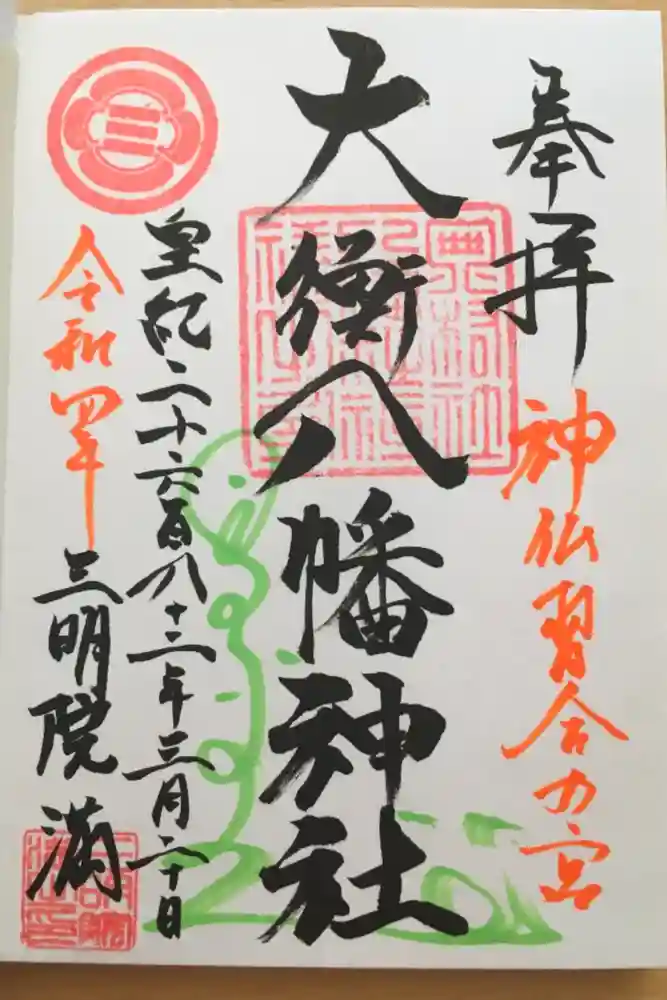 奉拝
神仏習合乃宮
大衡八幡神社
皇紀二千六百八十二年三月二十日
令和四年
三明院 満